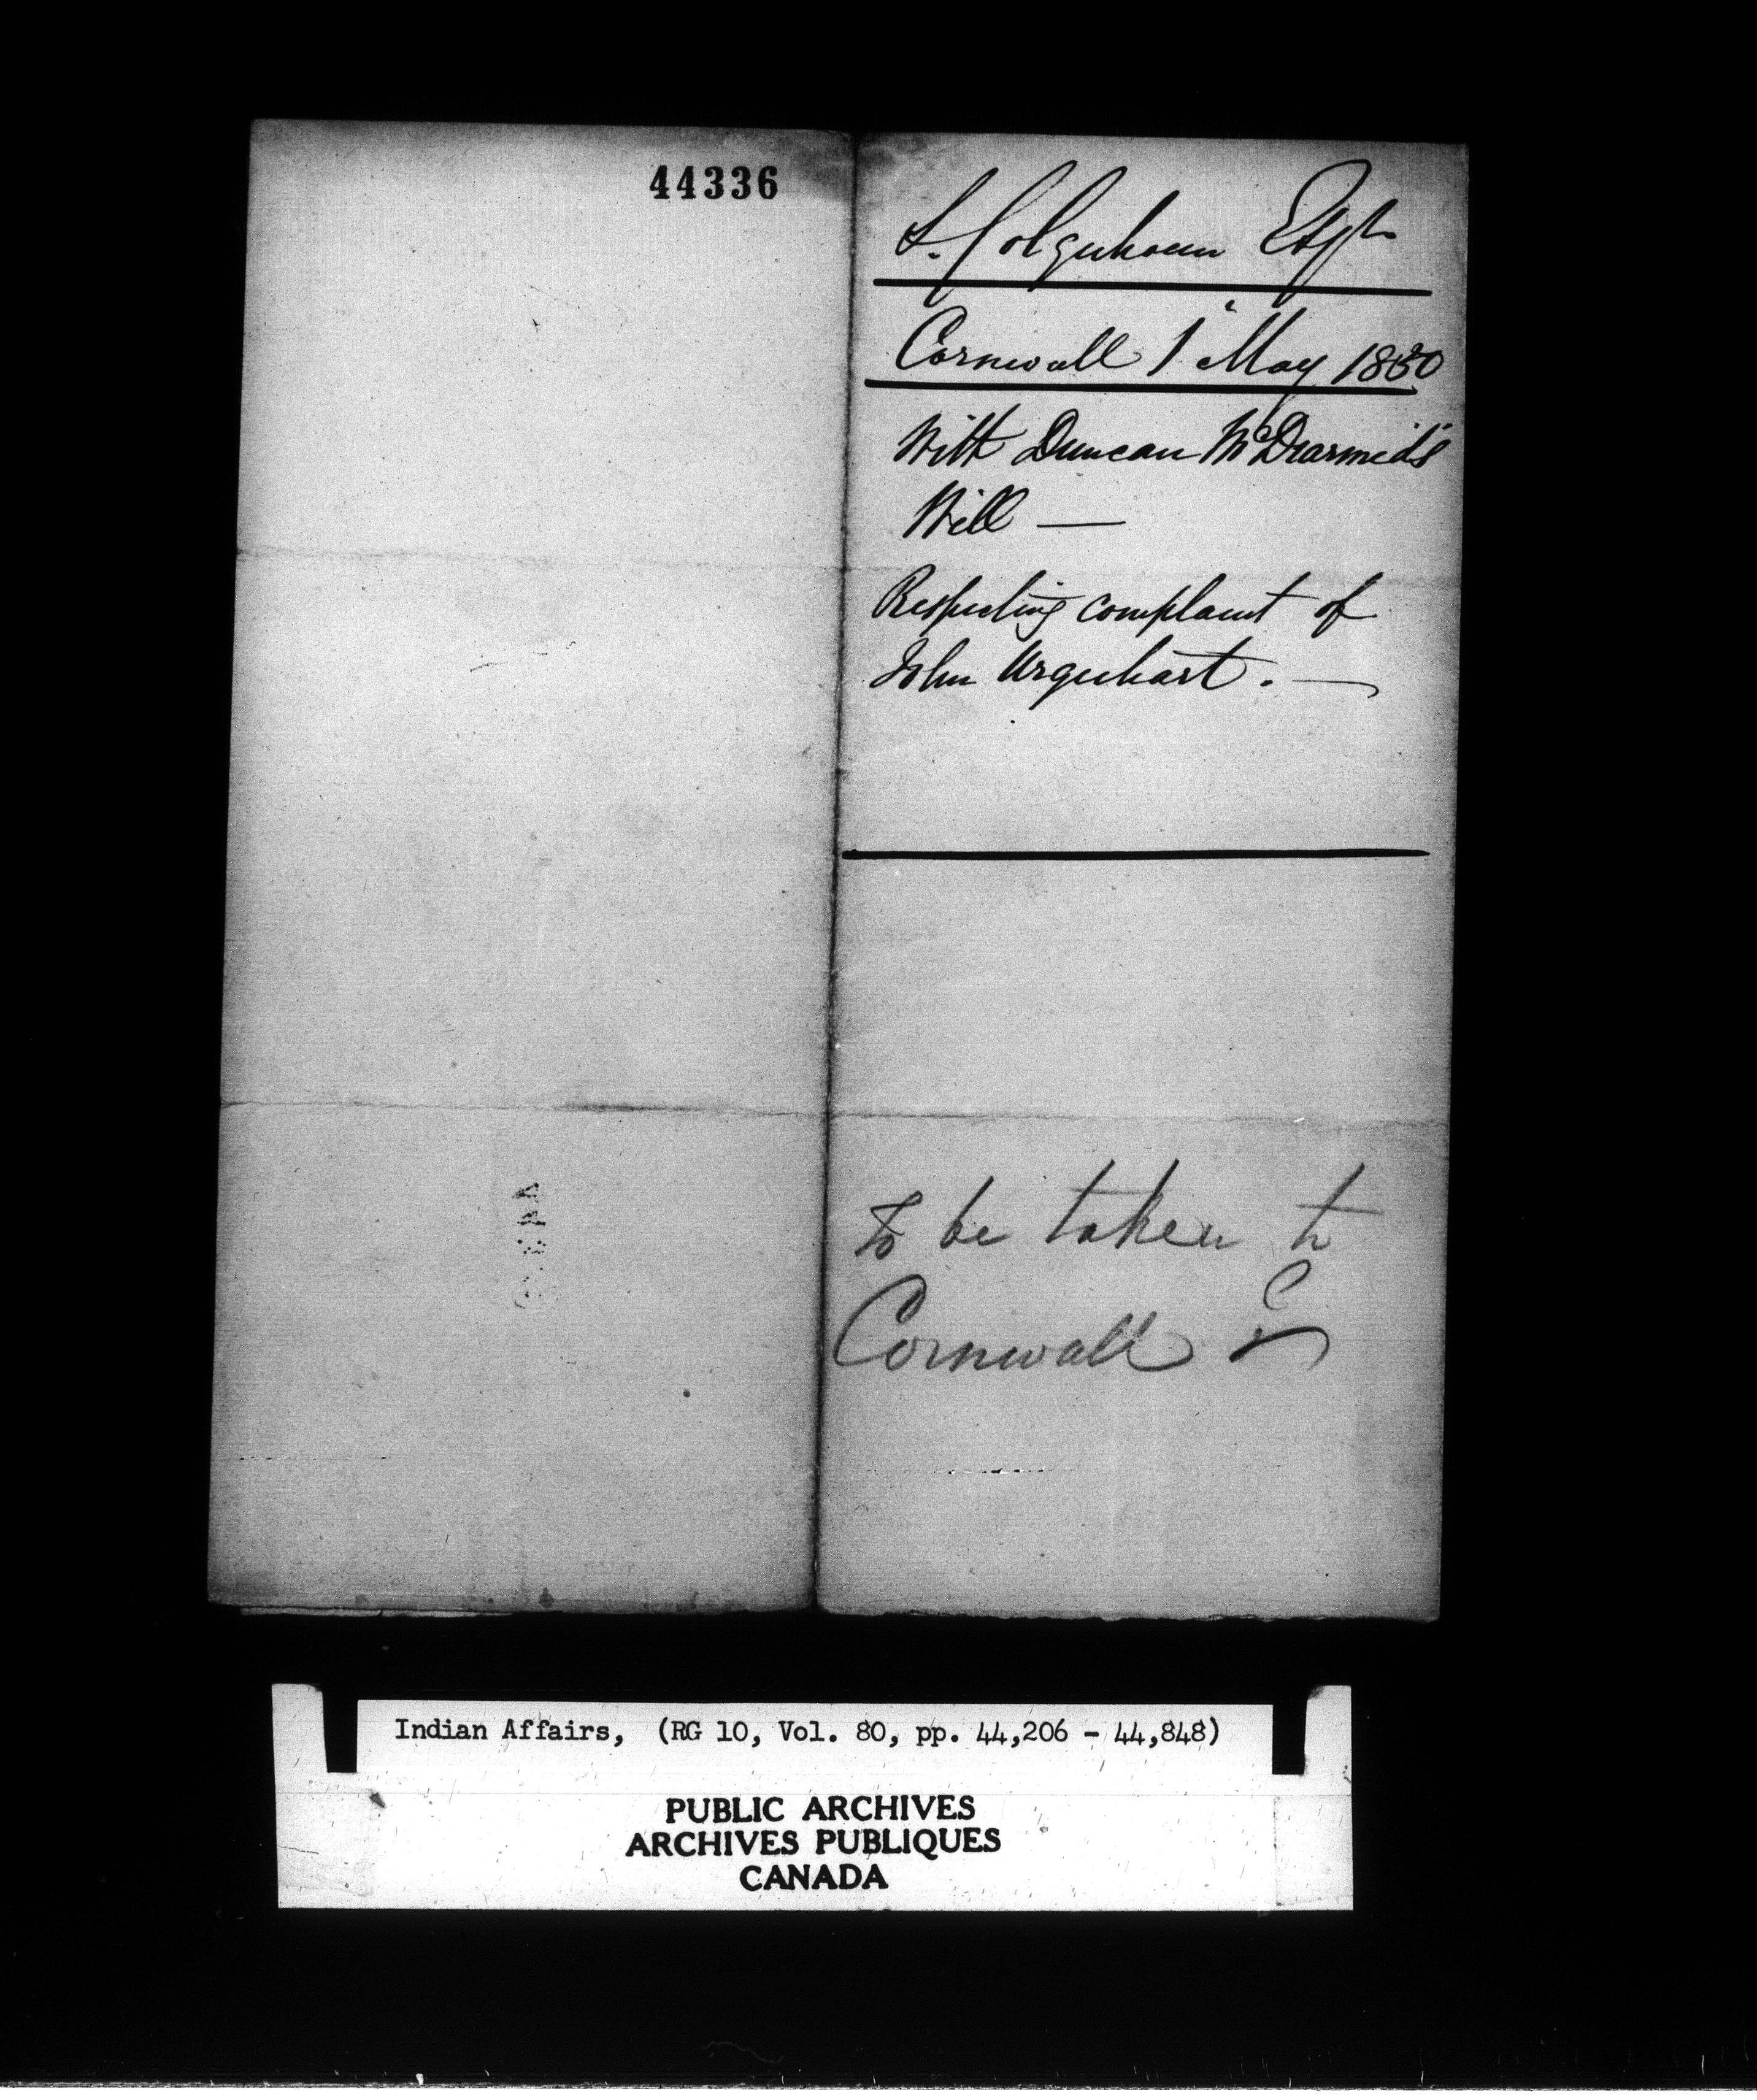 44336
S. Colquhoun Esqr
Cornwall 1 May 1830
With Duncan McDiarmid's
Will —
Respecting complaint of
John Urquhart. —
To be taken to
Cornwall
Indian Affairs, (RG 10, Vol. 80, pp. 44,206 - 44,848)
PUBLIC ARCHIVES
ARCHIVES PUBLIQUES
CANADA